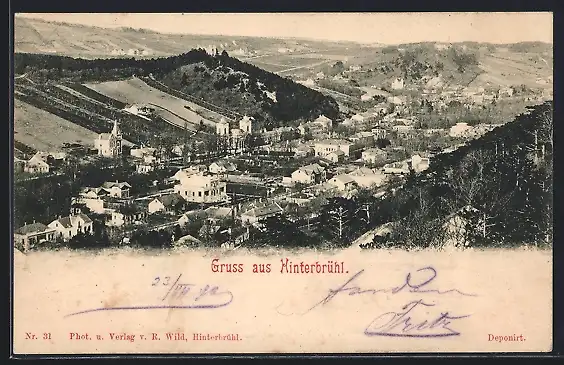 Gruss aus Hinterbrühl.
Fritz
Nr. 31 Phot. u. Verlag v. R. Wild, Hinterbrühl. Deponirt.